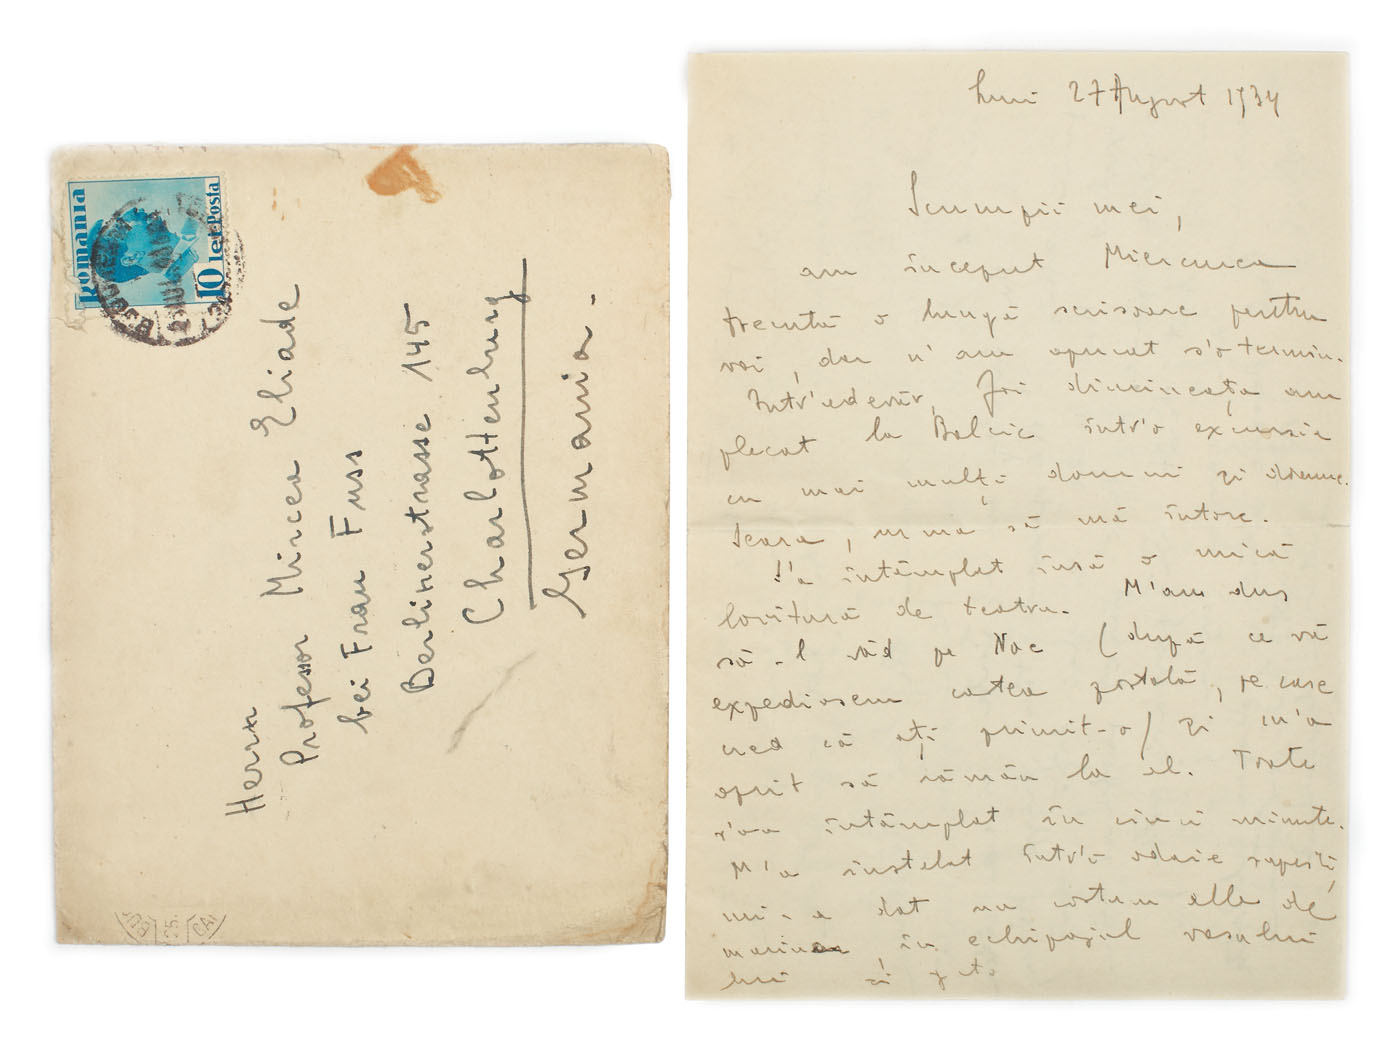 Romania
10 lei Posta
Herrn
Professor Mircea Eliade
bei Frau Fuss
Berlinerstrasse 145
Charlottenburg
Germania.
Luni 27 August 1934
Scumpii mei,
am început Miercurea
trecută o lungă scrisoare pentru
voi, dar n'am apucat s'o termin.
Într'adevăr, Joi dimineața am
plecat la Balcic într'o excursie
cu mai mulți domni și doamne.
Seara, urma să mă întorc.
S'a întâmplat însă o mică
lovitură de teatru. M'am dus
să-l văd pe Nae (după ce vă
expediasem cartea poștală, pe care
cred că ați primit-o) și m'a
oprit să rămân la el. Toate
s'au întâmplat în cinci minute.
M'a instalat într'o odaie
mi-a dat un costum de
marinar în echipajul vasului
lui și gata